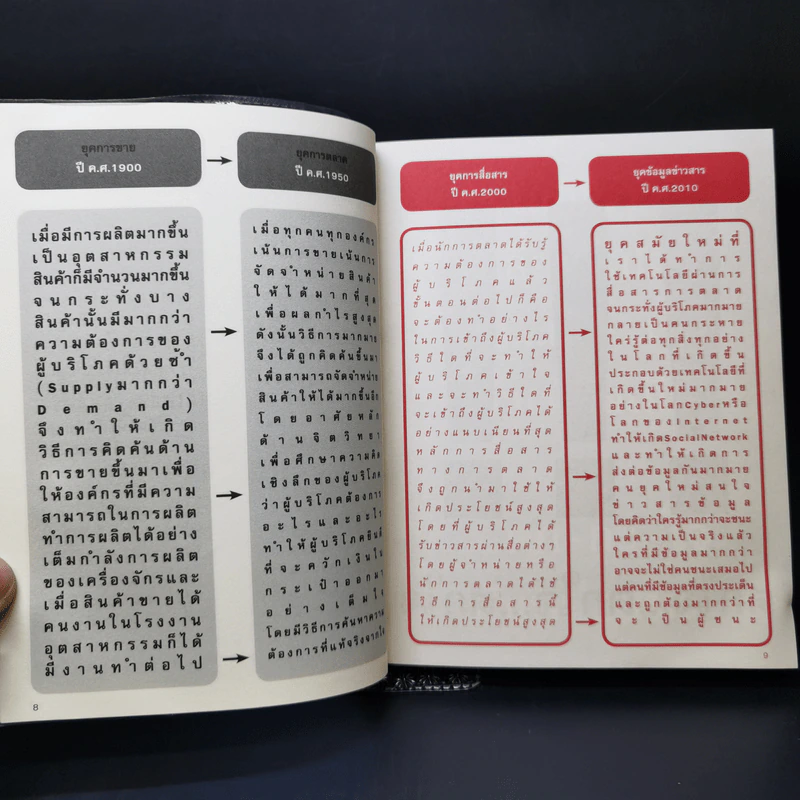 ยุคการขาย
ปี ค.ศ.1900
เมื่อมีการผลิตมากขึ้น
เป็นอุตสาหกรรม
สินค้าก็มีจำนวนมากขึ้น
จนกระทั่งบาง
สินค้านั้นมีมากกว่า
ความต้องการของ
ผู้บริโภคด้วยซ้ำ
(Supplyมากกว่า
Demand)
จึงทำให้เกิด
วิธีการคิดค้นด้าน
การขายขึ้นมาเพื่อ
ให้องค์กรที่มีความ
สามารถในการผลิต
ทำการผลิตได้อย่าง
เต็มกำลังการผลิต
ของเครื่องจักรและ
เมื่อสินค้าขายได้
คนงานในโรงงาน
อุตสาหกรรมก็ได้
มีงานทำต่อไป
8
ยุคการตลาด
ปี ค.ศ.1950
เมื่อทุกคนทุกองค์กร
เน้นการขายเน้นการ
จัดจำหน่ายสินค้า
ให้ได้มากที่สุด
เพื่อผลกำไรสูงสุด
ดังนั้นวิธีการมากมาย
จึงได้ถูกคิดค้นขึ้นมา
เพื่อสามารถจัดจำหน่าย
สินค้าให้ได้มากขึ้นอีก
โดยอาศัยหลัก
ด้านจิตวิทยา
เพื่อศึกษาความคิด
เชิงลึกของผู้บริโภค
ว่าผู้บริโภคต้องการ
อะไรและอะไร
ทำให้ผู้บริโภคยินดี
ที่จะควักเงินใน
กระเป๋าออกมา
อย่างเต็มใจ
โดยมีวิธีการค้นหาความ
ต้องการที่แท้จริงจากใจ
ยุคการสื่อสาร
ปี ค.ศ.2000
เมื่อนักการตลาดได้รับรู้
ความต้องการของ
ผู้บริโภคแล้ว
ขั้นตอนต่อไปก็คือ
จะต้องทำอย่างไร
ในการเข้าถึงผู้บริโภค
วิธีใดที่จะทำให้
ผู้บริโภคเข้าใจ
และจะทำวิธีใดที่
จะเข้าถึงผู้บริโภคได้
อย่างแนบเนียนที่สุด
หลักการสื่อสาร
ทางการตลาด
จึงถูกนำมาใช้ให้
เกิดประโยชน์สูงสุด
โดยที่ผู้บริโภคได้
รับข่าวสารผ่านสื่อต่างๆ
โดยผู้จำหน่ายหรือ
นักการตลาดได้ใช้
วิธีการสื่อสารนี้
ให้เกิดประโยชน์สูงสุด
ยุคข้อมูลข่าวสาร
ปี ค.ศ.2010
ยุคสมัยใหม่ที่
เราได้ทำการ
ใช้เทคโนโลยีผ่านการ
สื่อสารการตลาด
จนกระทั่งผู้บริโภคมากมาย
กลายเป็นคนกระหาย
ใคร่รู้ต่อทุกสิ่งทุกอย่าง
ในโลกที่เกิดขึ้น
ประกอบด้วยเทคโนโลยีที่
เกิดขึ้นใหม่มากมาย
อย่างในโลกCyberหรือ
โลกของInternet
ทำให้เกิดSocialNetwork
และทำให้เกิดการ
ส่งต่อข้อมูลกันมากมาย
คนยุคใหม่สนใจ
ข่าวสารข้อมูล
โดยคิดว่าใครรู้มากกว่าจะชนะ
แต่ความเป็นจริงแล้ว
ใครที่มีข้อมูลมากกว่า
อาจจะไม่ใช่คนชนะเสมอไป
แต่คนที่มีข้อมูลที่ตรงประเด็น
และถูกต้องมากกว่าที่
จะเป็นผู้ชนะ
9